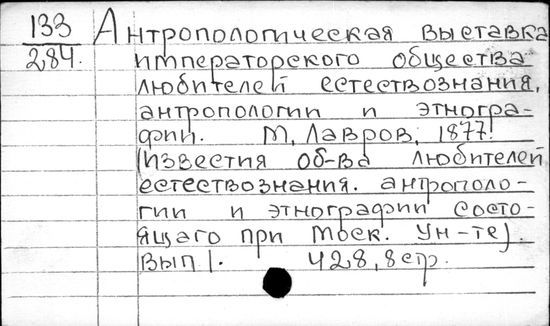 133 Антропологическая выставка
284. императорского общества
любителей естествознания,
антропологии и этногра-
фии. М, Лавров, 1877.
(Известия об-ва любителей
естествознания. антрополо-
гии и этнографии состо-
ящаго при Моск. Ун-те).
Вып 1. 428, 8 стр.